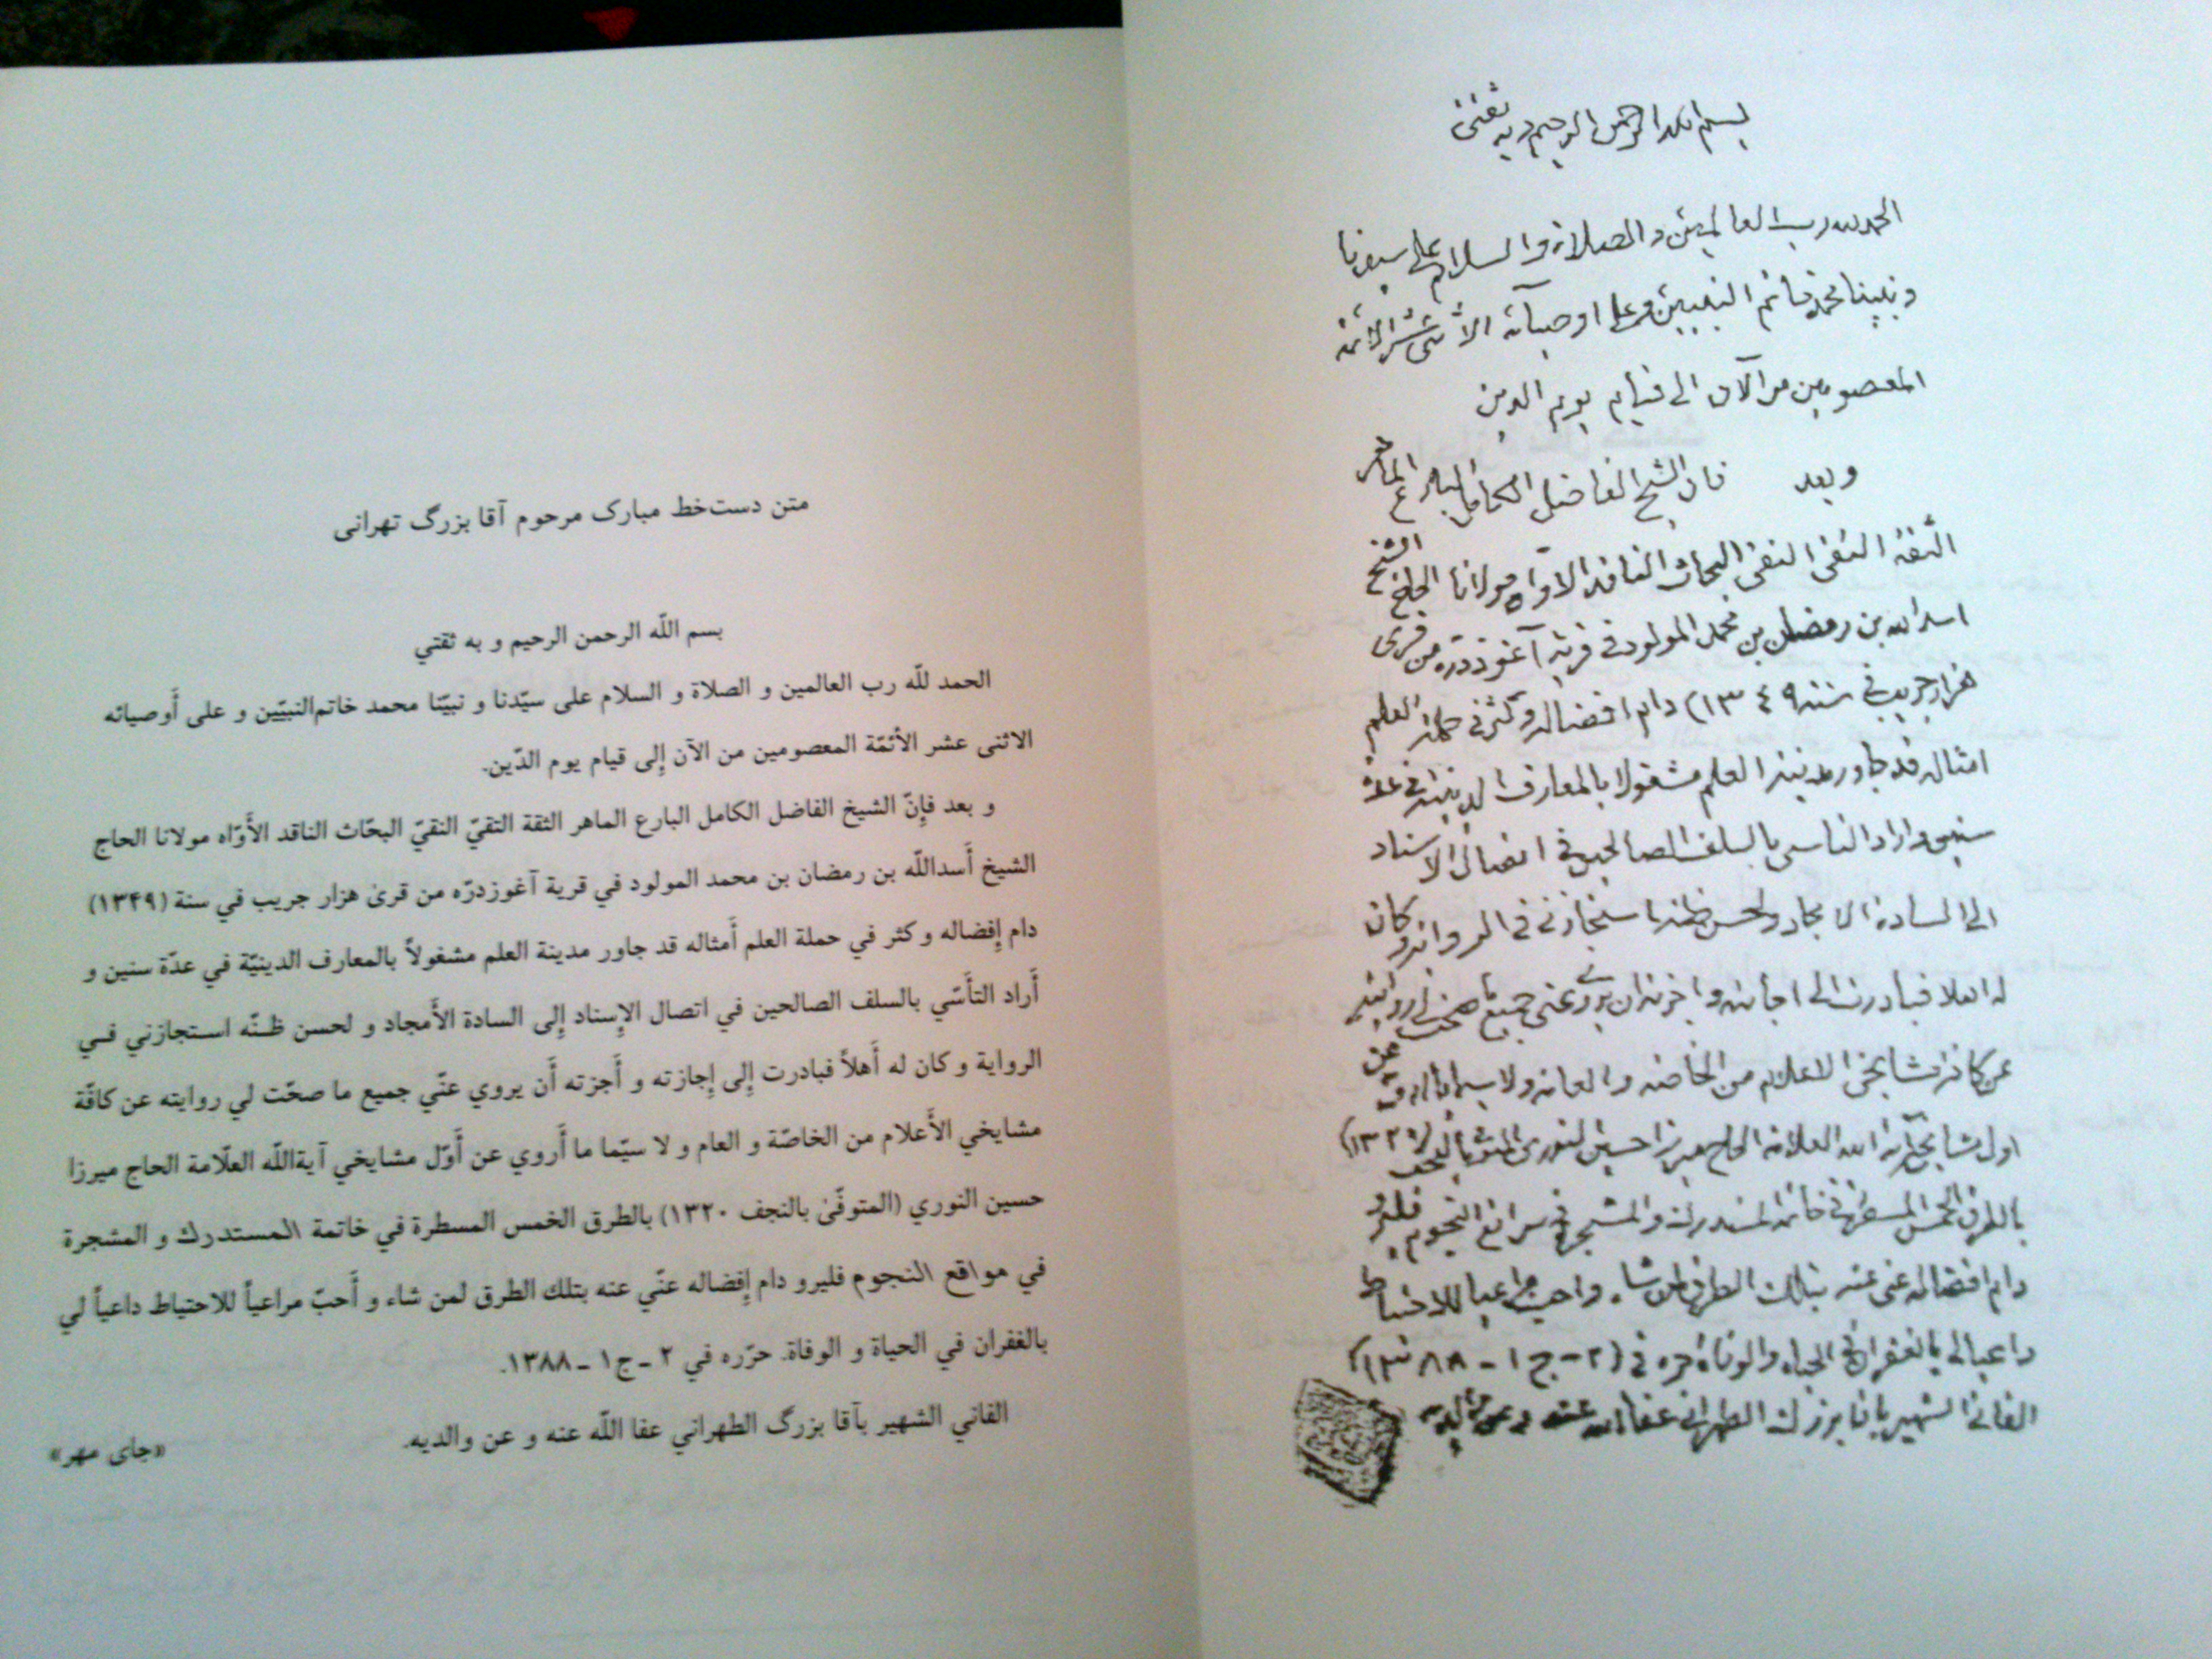 متن دست‌خط مبارک مرحوم آقا بزرگ تهرانی
بسم اللّه الرحمن الرحیم و به ثقتي
الحمد للّه رب العالمین و الصلاة و السلام على سیّدنا و نبیّنا محمد خاتم‌النبیّین و على أَوصیائه
الاثنى عشر الأئمّة المعصومین من الآن إِلى قیام یوم الدّین.
و بعد فإِنّ الشیخ الفاضل الکامل البارع الماهر الثقة التقيّ النقيّ البحّاث الناقد الأَوّاه مولانا الحاج
الشیخ أَسداللّه بن رمضان بن محمد المولود في قریة آغوزدرّه من قرىٰ هزار جریب في سنة (۱۳۴۹)
دام إِفضاله و کثر في حملة العلم أَمثاله قد جاور مدینة العلم مشغولاً بالمعارف الدینیّة في عدّة سنین و
أَراد التأسّي بالسلف الصالحین في اتصال الإِسناد إِلى السادة الأَمجاد و لحسن ظنّه استجازني في
الروایة و کان له أَهلاً فبادرت إِلى إِجازته و أَجزته أَن یروي عنّي جمیع ما صحّت لي روایته عن کافّة
مشایخي الأَعلام من الخاصّة و العام و لا سیّما ما أَروي عن أَوّل مشایخي آیةاللّه العلّامة الحاج میرزا
حسین النوري (المتوفّىٰ بالنجف ۱۳۲۰) بالطرق الخمس المسطرة في خاتمة المستدرك و المشجرة
في مواقع النجوم فلیرو دام إِفضاله عنّي عنه بتلك الطرق لمن شاء و أَحبّ مراعیاً للاحتیاط داعیاً لي
بالغفران في الحیاة و الوفاة. حرّره في ۲ ـ ج۱ ـ ۱۳۸۸.
الفاني الشهیر بآقا بزرگ الطهراني عفا اللّه عنه و عن والدیه.
«جای مهر»
بسم الله الرحمن الرحیم و به ثقتی
الحمد لله رب العالمین و الصلاة و السلام علی سیدنا
و نبینا محمد خاتم النبیین و علی اوصیآئه الاثنی عشر الائمة
المعصومین من الآن الی قیام یوم الدین
و بعد فان الشیخ الفاضل الکامل البارع الماهر
الثقة التقی النقی البحاث الناقد الاواه مولانا الحاج الشیخ
اسد الله بن رمضان بن محمد المولود فی قریة آغوزدره من قری
هزار جریب فی سنة ۱۳٤۹) دام افضاله و کثر فی حملة العلم
امثاله قد جاور مدینة العلم مشغولا بالمعارف الدینیة فی عدة
سنین و اراد التاسی بالسلف الصالحین فی اتصال الاسناد
الی السادة الامجاد و لحسن ظنه استجازنی فی الروایة و کان
له اهلا فبادرت الی اجازته و اجزته ان یروی عنی جمیع ما صحت لی روایته
عن کافة مشایخی الاعلام من الخاصة و العامة و لا سیما ما اروی عن
اول مشایخی آیة الله العلامة الحاج میرزا حسین النوری المتوفی بالنجف (۱۳۲۰)
بالطرق الخمس المسطرة فی خاتمة المستدرك و المشجرة فی مواقع النجوم فلیرو
دام افضاله عنی عنه بتلك الطرق لمن شاء و احب مراعیا للاحتیاط
داعیا لی بالغفران فی الحیاة و الوفاة حرره فی (۲ - ج ۱ - ۱۳۸۸)
الفانی الشهیر بآقا بزرك الطهرانی عفا الله عنه و عن والدیه